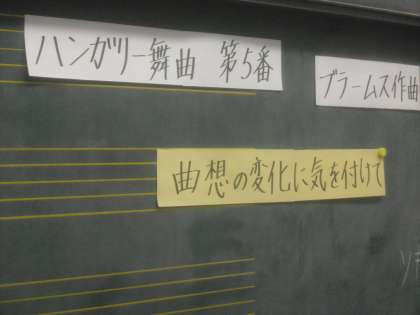 ハンガリー舞曲 第5番
ブラームス作曲
曲想の変化に気を付けて